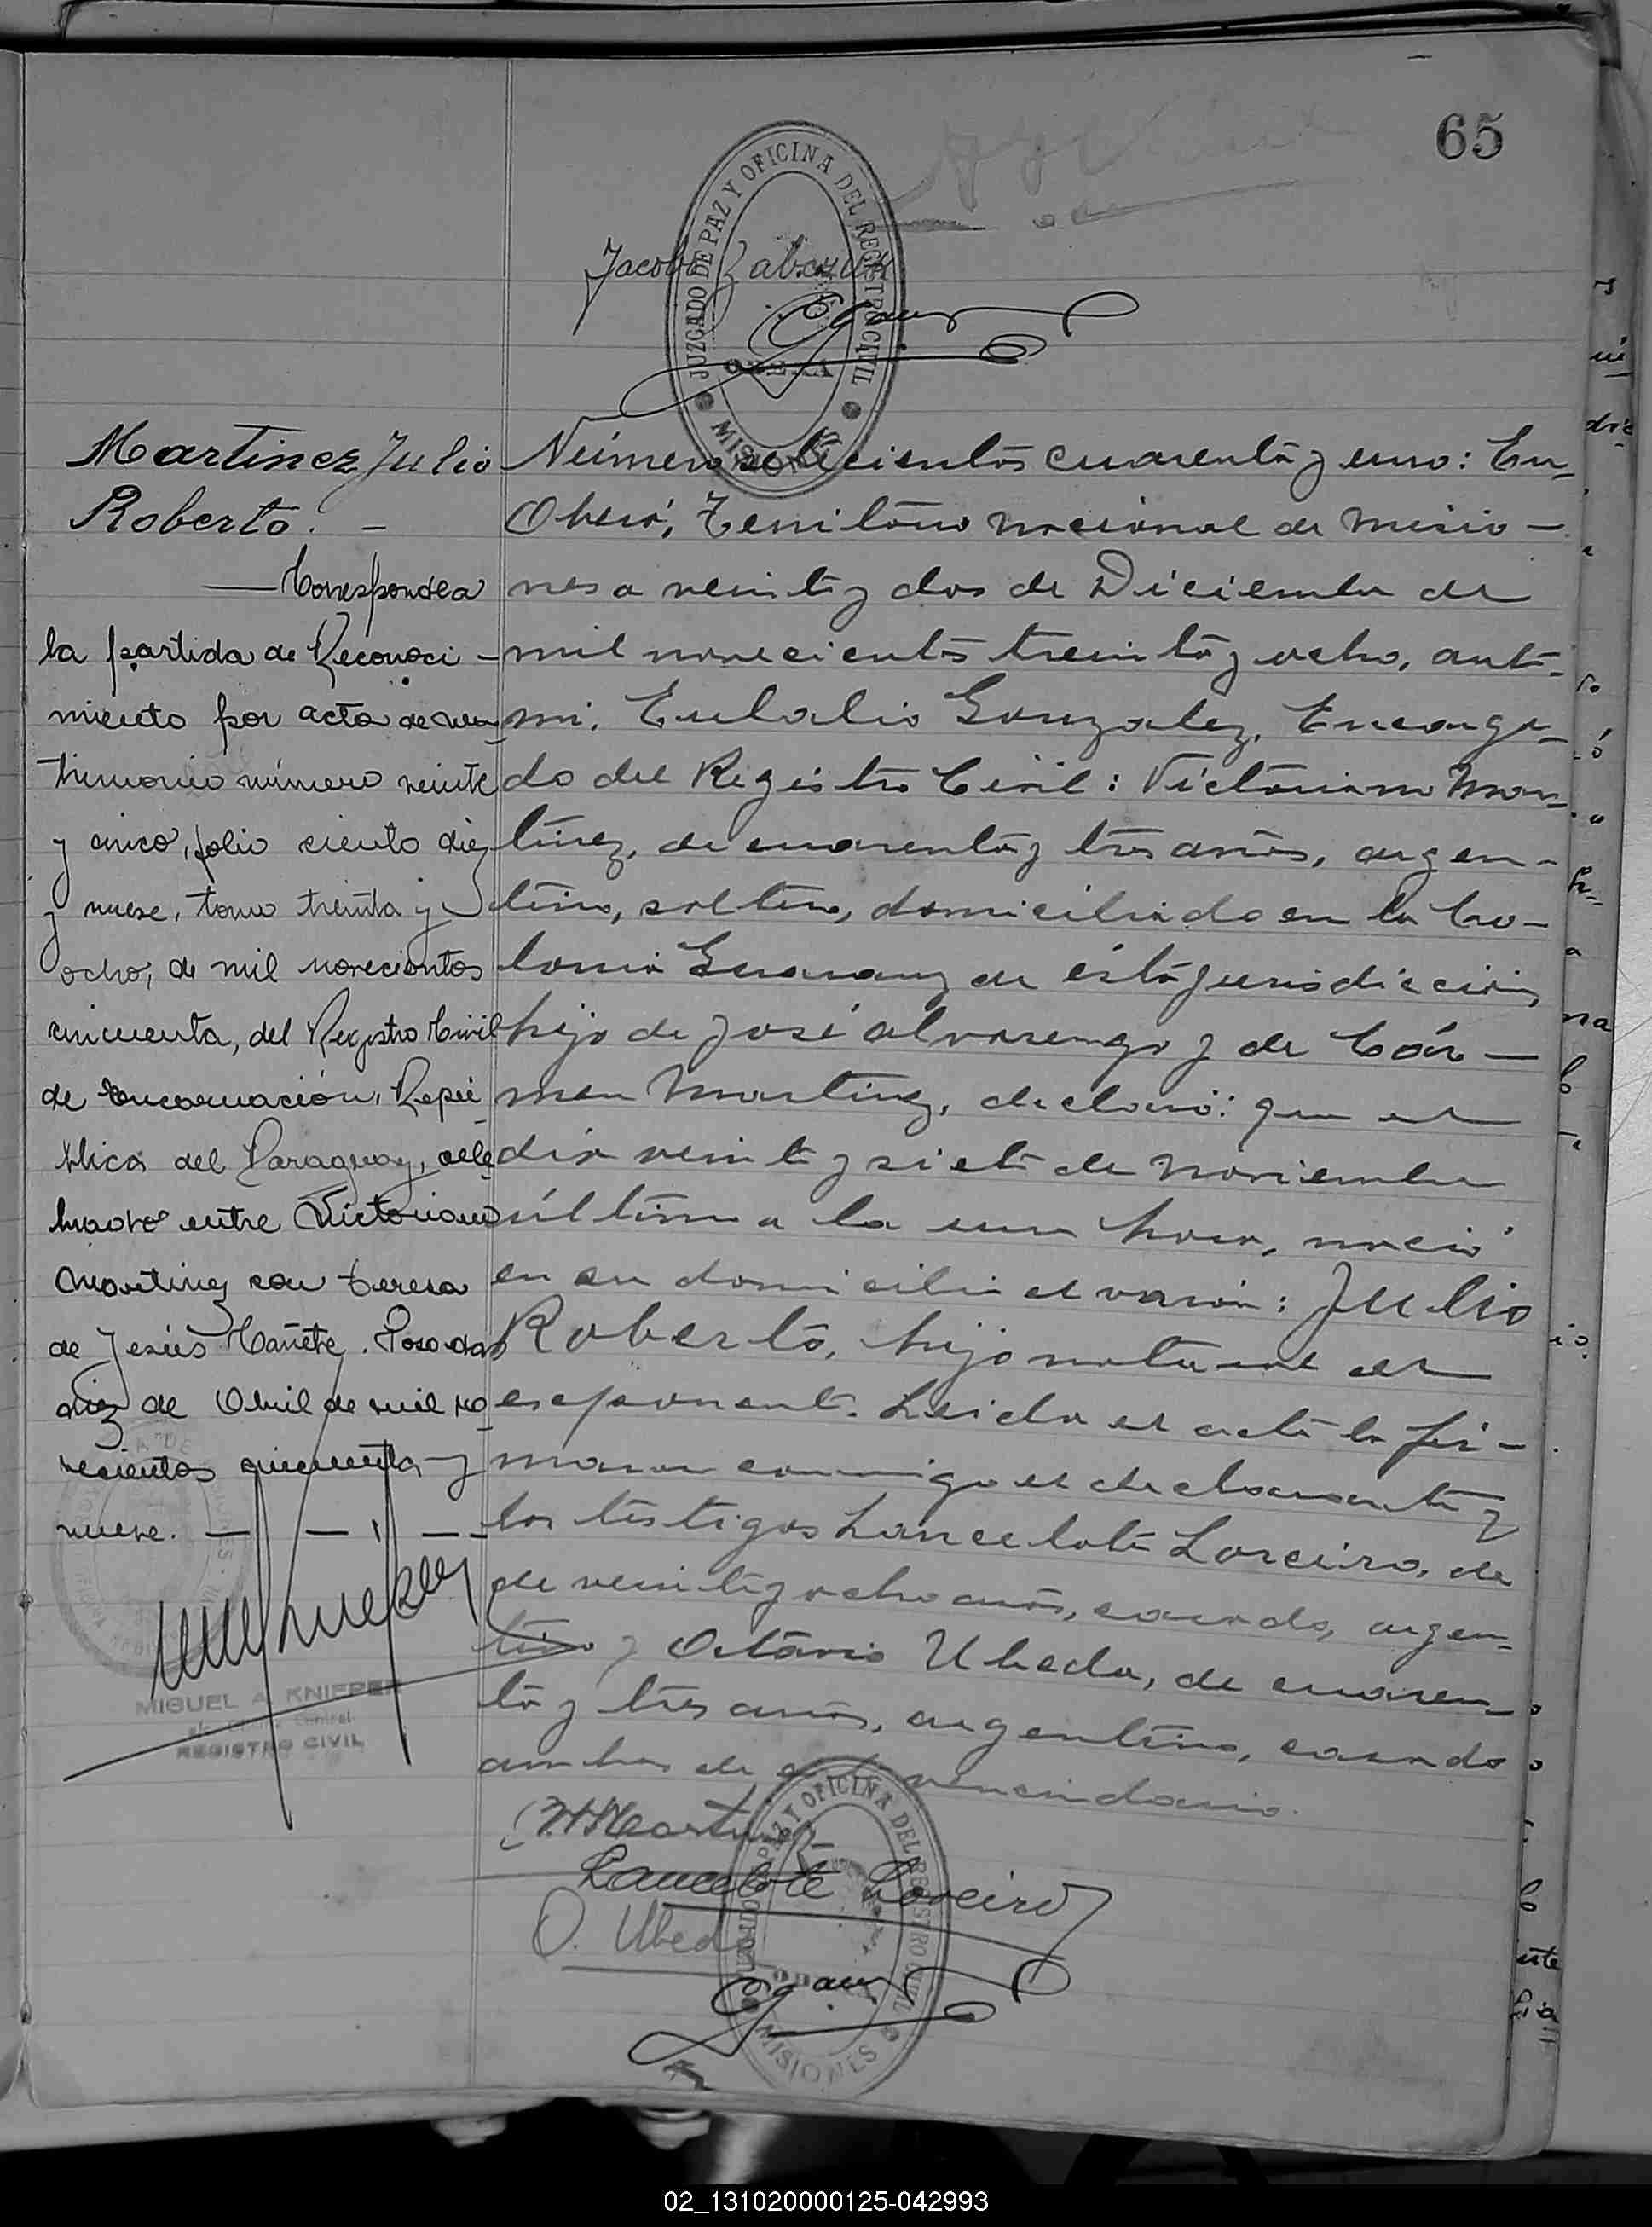 65
JUZGADO DE PAZ Y OFICINA DEL REGISTRO CIVIL
OBERA
MISIONES
Jacobo
Martinez Julio
Roberto. —
— Corresponde a
la partida de Reconoci-
miento por acta de ma-
trimonio número veinte
y cinco, folio ciento diez
y nueve, tomo treinta y
ocho, de mil novecientos
cincuenta, del Registro Civil
de Encarnación, Repú
blica del Paraguay, cele
brado entre Victoriano
Martinez con Teresa
de Jesús Cañete. Posadas
diez de Abril de mil no-
vecientos cincuenta y
nueve. — — — —
MIGUEL A. KNIEPER
REGISTRO CIVIL
Número setecientos cuarenta y uno: En
Oberá, Territorio Nacional de Misio-
nes a veinte y dos de Diciembre de
mil novecientos treinta y ocho, ante
mi, Eulalio Gonzalez, Encarga-
do del Registro Civil: Victoriano Mar-
tinez, de cuarenta y tres años, argen-
tino, soltero, domiciliado en la Co-
lonia Guarany de ésta jurisdicción,
hijo de José Alvarenga y de Cár-
men Martinez, declaró: que el
día veinte y siete de Noviembre
último a la una hora, nació
en su domicilio el varón: Julio
Roberto, hijo natural del
esponente. Leida el acta la fir-
maron conmigo el declarante y
los testigos Lancelote Loreiro, de
de veinte y ocho años, casado, argen-
tino y Octavio Ubeda, de cuaren-
ta y tres años, argentino, casado
ambos de este vecindario.
V. Martinez
Lancelote Loreiro
O. Ubeda
JUZGADO DE PAZ Y OFICINA DEL REGISTRO CIVIL
MISIONES
02_131020000125-042993